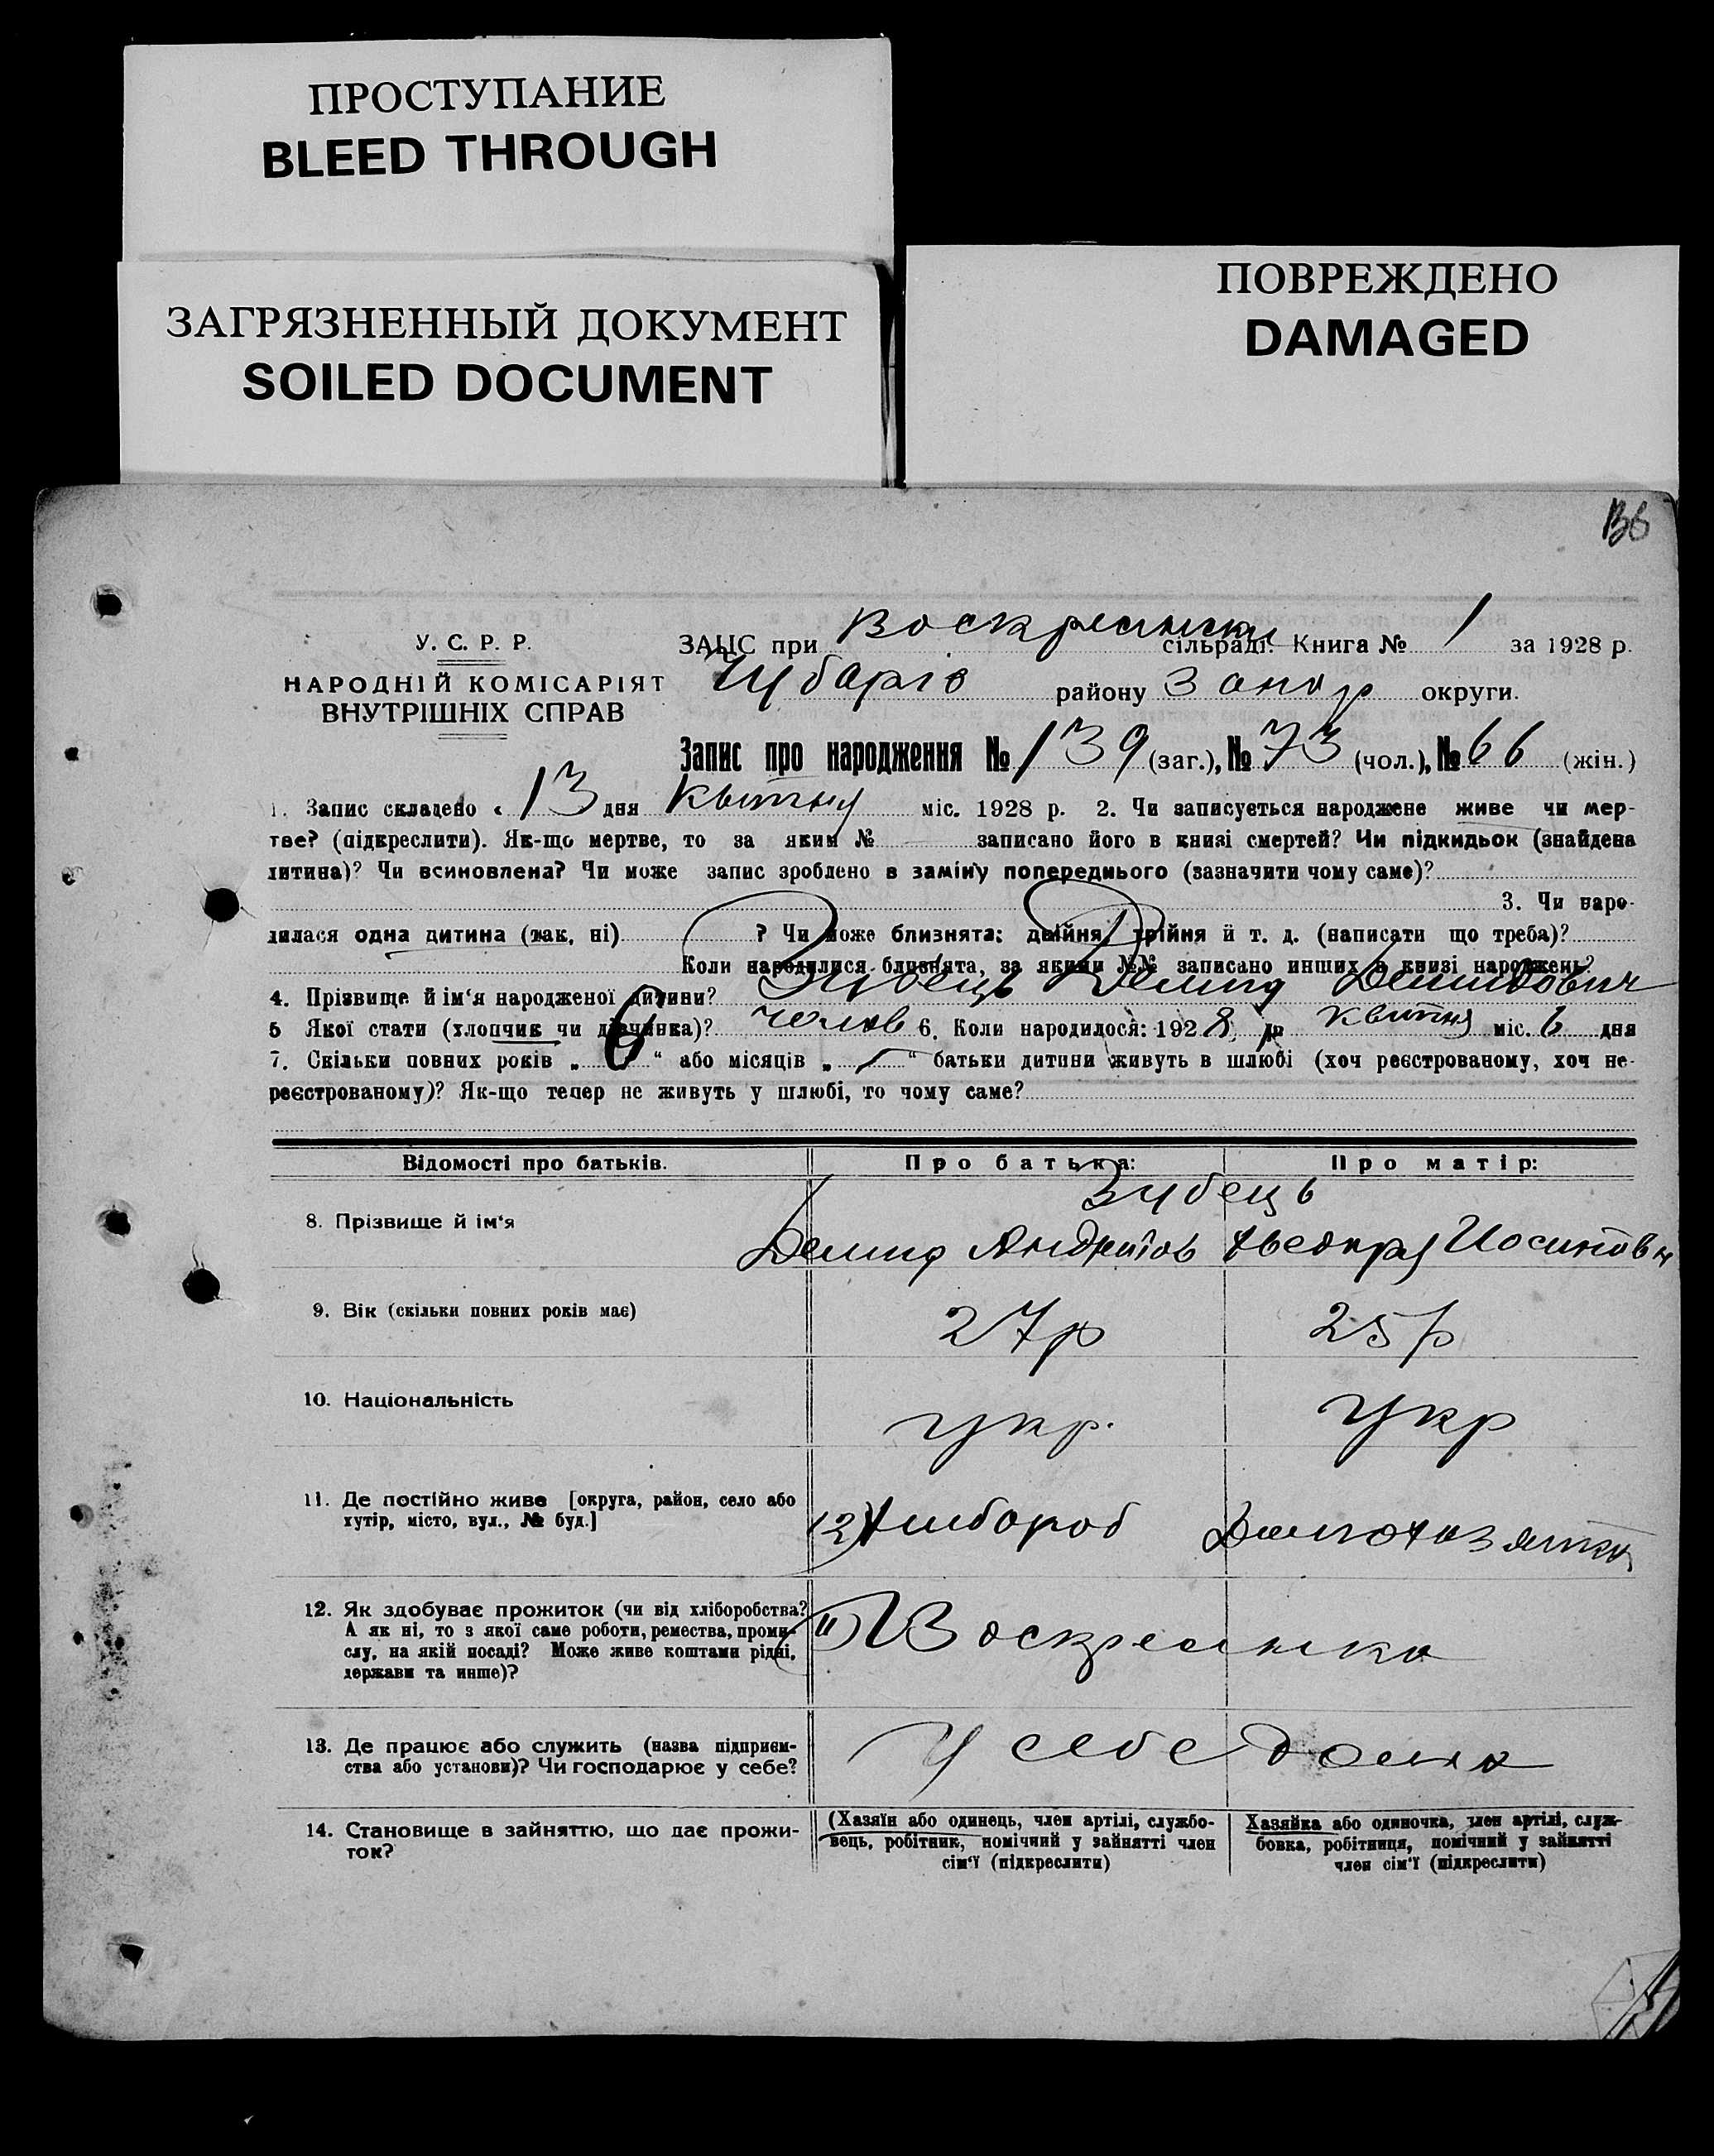 ПРОСТУПАНИЕ
BLEED THROUGH
ЗАГРЯЗНЕННЫЙ ДОКУМЕНТ
SOILED DOCUMENT
ПОВРЕЖДЕНО
DAMAGED
У. С. Р. Р.
НАРОДНІЙ КОМІСАРІЯТ
ВНУТРІШНІХ СПРАВ
ЗАЦС при Воскресенськ. сільраді. Книга № 1 за 1928 р.
Чубарів району Запор округи.
Запис про народження № 139 (заг.), № 73 (чол.), № 66 (жін.)
1. Запис складено « 13 дня квітня міс. 1928 р. 2. Чи записується народжене живе чи мер-
тве? (підкреслити). Як-що мертве, то за яким № записано його в книзі смертей? Чи підкидьок (знайдена
дитина)? Чи всиновлена? Чи може запис зроблено в заміну попереднього (зазначити чому саме)?
3. Чи наро-
дилася одна дитина (так, ні) ? Чи може близнята: двійня, трійня й т. д. (написати що треба)?
Коли народилися близнята, за якими №№ записано инших в книзі народжень?
4. Прізвище й ім'я народженої дитини? Зубець Демид Демидович
5 Якої стати (хлопчик чи дівчинка)? чолов 6. Коли народилося: 1928 р квітня міс. 6 дня
7. Скільки повних років „ 6 “ або місяців „ - “ батьки дитини живуть в шлюбі (хоч реєстрованому, хоч не-
реєстрованому)? Як-що тепер не живуть у шлюбі, то чому саме?
Відомості про батьків. Про батька: Про матір:
Зубець
8. Прізвище й ім'я Демид Андріїов Осиповн
9. Вік (скільки повних років має) 27р 25р
10. Національність укр. укр
11. Де постійно живе [округа, район, село або
хутір, місто, вул., № буд.] 12) хлібороб
12. Як здобуває прожиток (чи від хліборобства?
А як ні, то з якої саме роботи, ремества, проми-
слу, на якій посаді? Може живе коштами рідні,
держави та инше)? 11) Воскресенка
13. Де працює або служить (назва підприєм-
ства або установи)? Чи господарює у себе? У себе дома
14. Становище в зайняттю, що дає прожи-
ток?
(Хазяїн або одинець, член артілі, службо-
вець, робітник, помічний у зайнятті член
сім'ї (підкреслити)
Хазяйка або одиночка, член артілі, служ-
бовка, робітниця, помічний у зайнятті
член сім'ї (підкреслити)